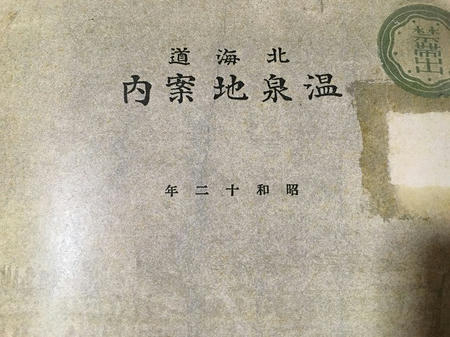 北海道
温泉地案内
昭和十二年